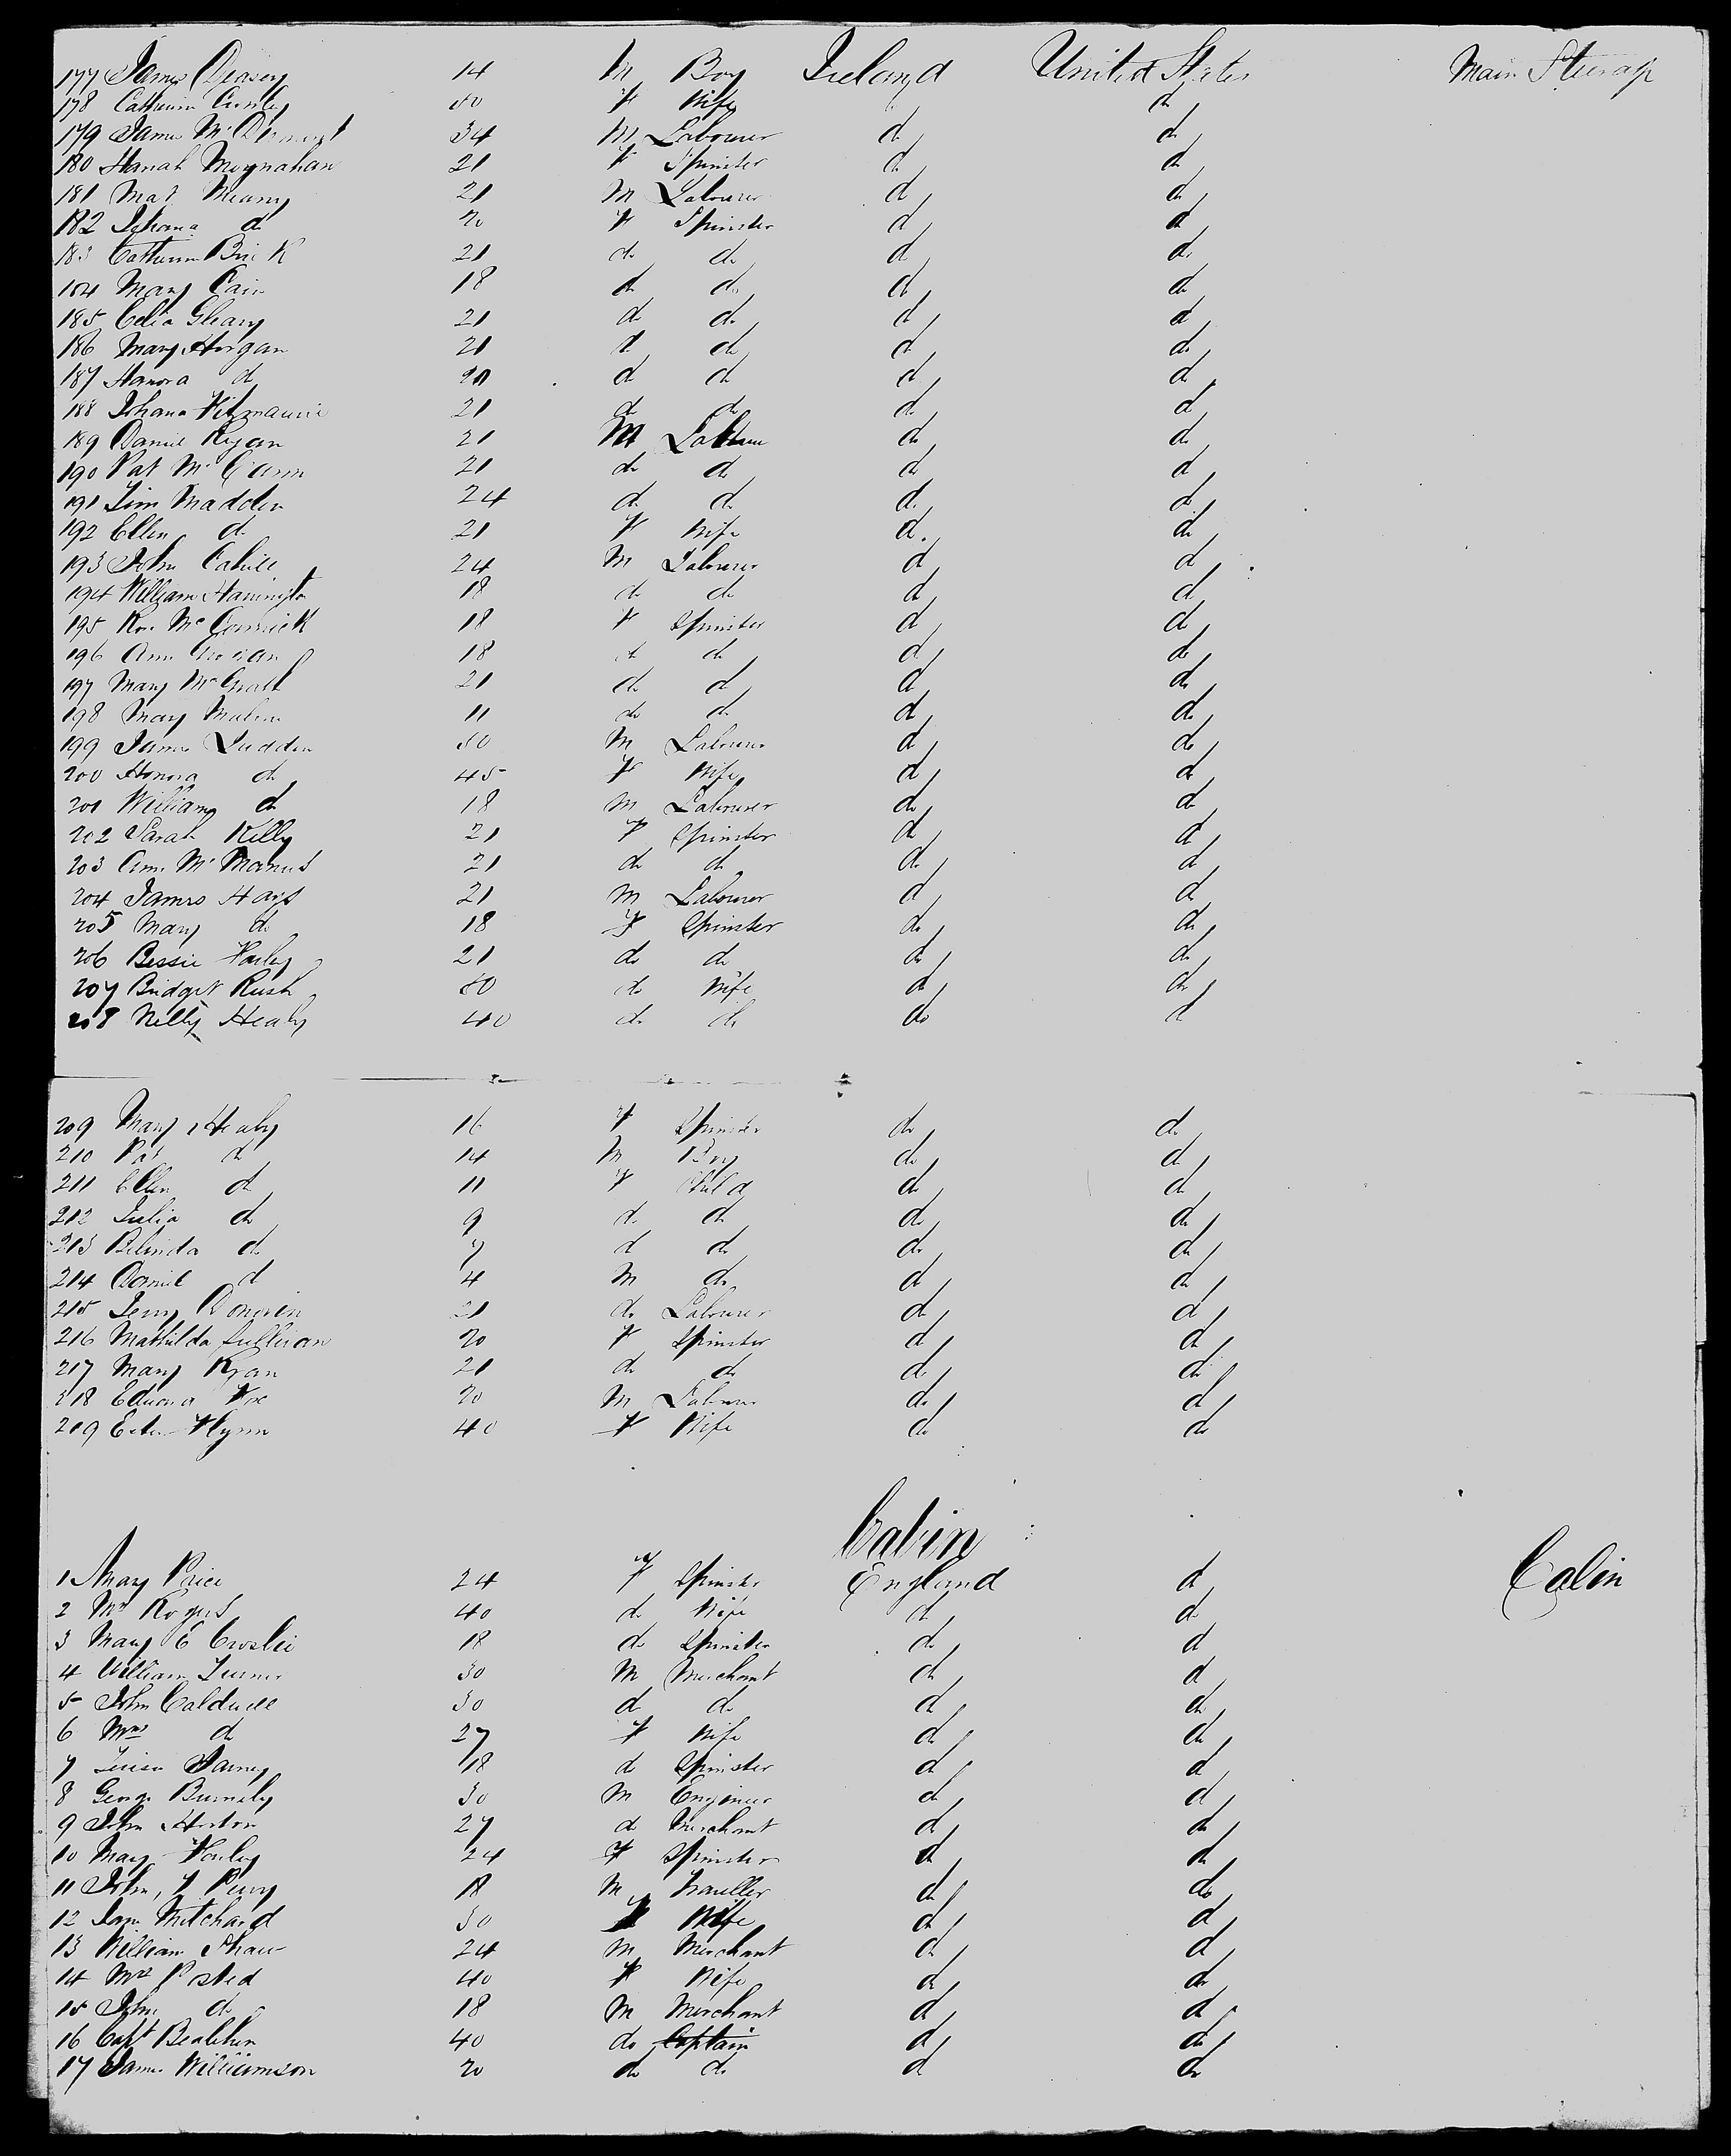 177 James Deasey 14 M Boy Ireland United States Main Steerage
178 Catherine 50 F Wife do
179 James McDermot 34 M Labourer do do
180 Hanah Moynahan 21 F Spinster do do
181 Mat Meany 21 M Labourer do do
182 Johana do 20 F Spinster do do
183 Catherine Brick 21 do do do do
184 Mary Cain 18 do do do do
185 Celia Gleary 21 do do do do
186 Mary Horgan 21 do do do do
187 Hanora do do do do do
188 Johana Fitzmaurice 21 do do do do
189 Daniel Ryan 21 M Labourer do do
190 Pat McGann 21 do do do do
191 Tim Madden 24 do do do do
192 Ellen do 21 F Wife do do
193 John Cahill 24 M Labourer do do
194 William Harrington 18 do do do do
195 Rose McCormick 18 F Spinster do do
196 Ann 18 do do do do
197 Mary McGratt 21 do do do do
198 Mary 11 do do do do
199 James Ludden 50 M Labourer do do
200 Honora do 45 F Wife do do
201 William do 18 M Labourer do do
202 Sarah Kelly 21 F Spinster do do
203 Ann McManus 21 do do do do
204 James Hays 21 M Labourer do do
205 Mary do 18 F Spinster do do
206 Bessie Farley 21 do do do do
207 Bridget Rush 50 do Wife do do
208 Nelly Healy 40 do do do do
209 Mary Healy 16 F Spinster do do
210 Pat do 14 M Boy do do
211 Ellen do 11 F Child do do
212 Julia do 9 do do do do
213 Belinda do 7 do do do do
214 Daniel do 4 M do do do
215 Jerry Donovin 21 do Labourer do do
216 Mathilda Sullivan 20 F Spinster do do
217 Mary Ryan 21 do do do do
218 Edward Fox 20 M Labourer do do
219 Flynn 40 F Wife do do
Cabin
1 Mary Price 24 F Spinster England do Cabin
2 Mrs Rogers 40 do Wife do do
3 Mary E Crosbie 18 do Spinster do do
4 William Turner 30 M Merchant do do
5 John Caldwell 30 do do do do
6 Mrs do 27 F Wife do do
7 18 do Spinster do do
8 George Burnely 30 M Engineer do do
9 John Horton 27 do Merchant do do
10 Mary Farley 24 F Spinster do do
11 John, F Perry 18 M Traveller do do
12 Jane Mitchard 30 F Wife do do
13 William Shaw 24 M Merchant do do
14 Mrs 40 F Wife do do
15 John do 18 M Merchant do do
16 Capt 40 do Captain do do
17 James Williamson 20 do do do do